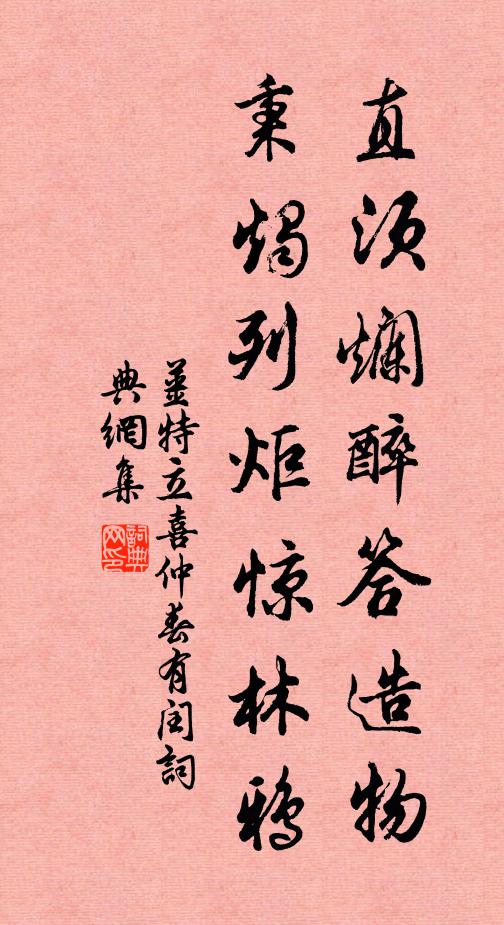 直须爛醉答造物
秉燭列炬惊林鴉
姜特立喜仲春有閏詞
典網集
詞典
网印